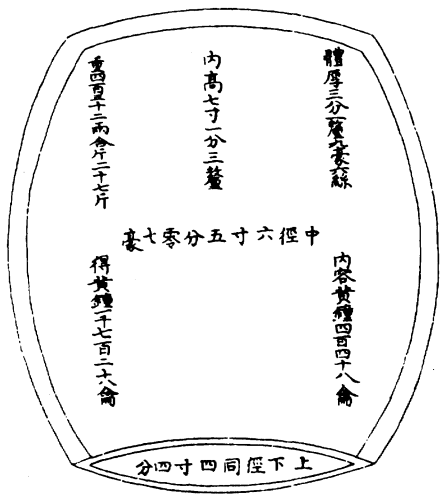 體厚三分一釐九豪六絲
內高七寸一分三釐
重四百三十二兩合斤二十七斤
中徑六寸五分零七豪
內容黃鐘四百四十八龠
得黃鐘一千七百二十八龠
上下徑同四寸四分